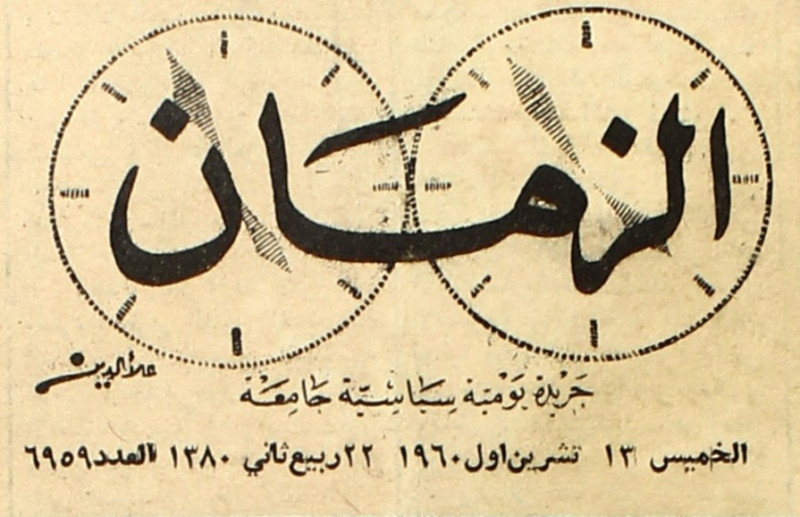 الزمان
علاءالدين
جَريْدة يَوْميّة سِيَاسِيّة جَامِعَة
الخميس ١٣ تشرين اول ١٩٦٠ ٢٢ ربيع ثاني ١٣٨٠ العدد ٦٩٥٩